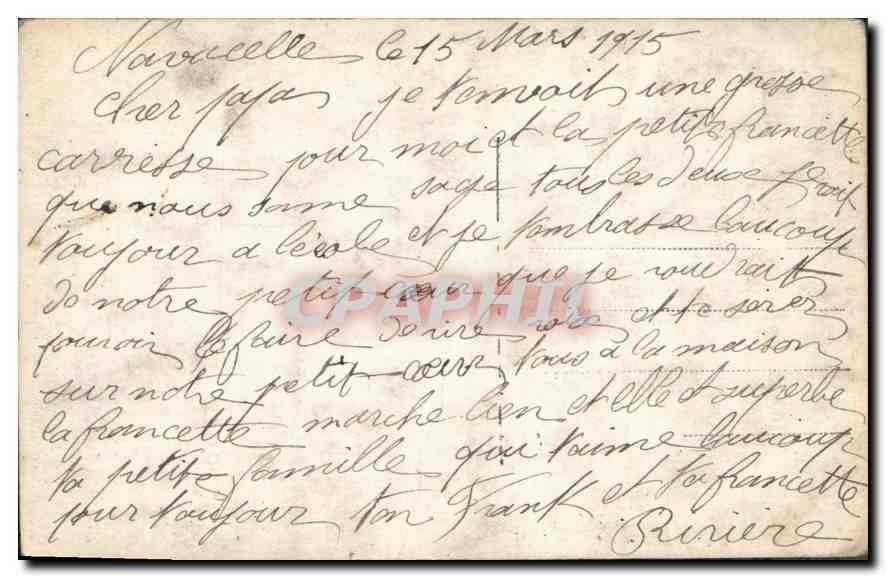 Navacelle le 15 Mars 1915
cher papa je t'envoit une grosse
carresse pour moi et la petite francette
que nous some sage tous les deux je vait
toujour a l'école et je t'embrasse baucoup
de notre petit cœur que je voudrait
pouvoir le faire de vive voix et te serer
sur notre petit cœur tous à la maison
la francette marche bien et elle et superbe
ta petite famille qui t'aime baucoup
pour toujour ton Frank et ta francette
Rivière
CPAPHIL